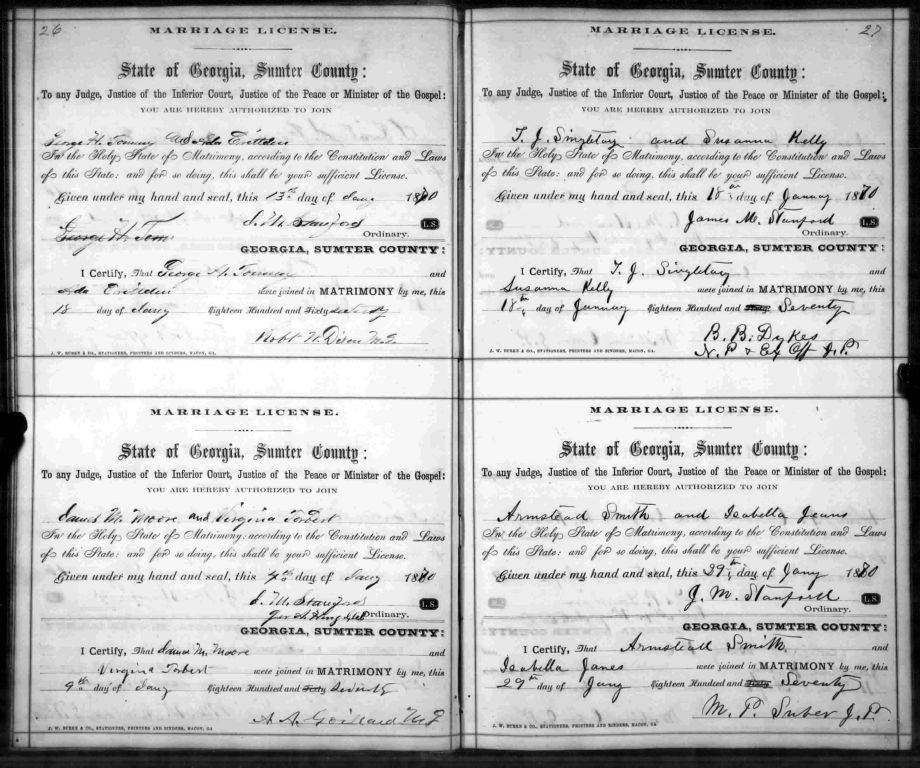 26
MARRIAGE LICENSE.
State of Georgia, Sumter County:
To any Judge, Justice of the Inferior Court, Justice of the Peace or Minister of the Gospel:
YOU ARE HEREBY AUTHORIZED TO JOIN
George H. and Ada
In the Holy State of Matrimony, according to the Constitution and Laws
of this State: and for so doing, this shall be your sufficient License.
Given under my hand and seal, this 13th day of Jany 1870
George H. J. M. Stanford L.S.
Ordinary.
GEORGIA, SUMTER COUNTY:
I Certify, That George H. and
Ada were joined in MATRIMONY by me, this
18 day of Jany Eighteen Hundred and Sixty
Robt
J. W. BURKE & CO., STATIONERS, PRINTERS AND BINDERS, MACON, GA.
MARRIAGE LICENSE.
State of Georgia, Sumter County:
To any Judge, Justice of the Inferior Court, Justice of the Peace or Minister of the Gospel:
YOU ARE HEREBY AUTHORIZED TO JOIN
James M. Moore and Virginia Torbert
In the Holy State of Matrimony: according to the Constitution and Laws
of this State: and for so doing, this shall be your sufficient License.
Given under my hand and seal, this 4th day of Jany 1870
J. M. Stanford L.S.
Ordinary.
GEORGIA, SUMTER COUNTY:
I Certify, That James M. Moore and
Virginia Torbert were joined in MATRIMONY by me, this
9th day of Jany Eighteen Hundred and Sixty Seventy
A. A.
J. W. BURKE & CO., STATIONERS, PRINTERS AND BINDERS, MACON, GA
27
MARRIAGE LICENSE.
State of Georgia, Sumter County:
To any Judge, Justice of the Inferior Court, Justice of the Peace or Minister of the Gospel:
YOU ARE HEREBY AUTHORIZED TO JOIN
T. J. Singletary and Susanna Kelly
In the Holy State of Matrimony, according to the Constitution and Laws
of this State: and for so doing, this shall be your sufficient License.
Given under my hand and seal, this 18th day of January 1870
James M. Stanford L.S.
Ordinary.
GEORGIA, SUMTER COUNTY:
I Certify, That T. J. Singletary and
Susanna Kelly were joined in MATRIMONY by me, this
18th day of January Eighteen Hundred and Sixty Seventy
B. B. Dykes
N. P & Ex Off J. P.
J. W. BURKE & CO., STATIONERS, PRINTERS AND BINDERS, MACON, GA.
MARRIAGE LICENSE.
State of Georgia, Sumter County:
To any Judge, Justice of the Inferior Court, Justice of the Peace or Minister of the Gospel:
YOU ARE HEREBY AUTHORIZED TO JOIN
Armstead Smith and Isabella Jeans
In the Holy State of Matrimony, according to the Constitution and Laws
of this State: and for so doing, this shall be your sufficient License.
Given under my hand and seal, this 29th day of Jany 1870
J. M. Stanford L.S.
Ordinary.
GEORGIA, SUMTER COUNTY:
I Certify, That Armstead Smith and
Isabella Janes were joined in MATRIMONY by me, this
29th day of Jany Eighteen Hundred and Sixty Seventy
M. P. Suber J. P.
J. W. BURKE & CO., STATIONERS, PRINTERS AND BINDERS, MACON, GA.